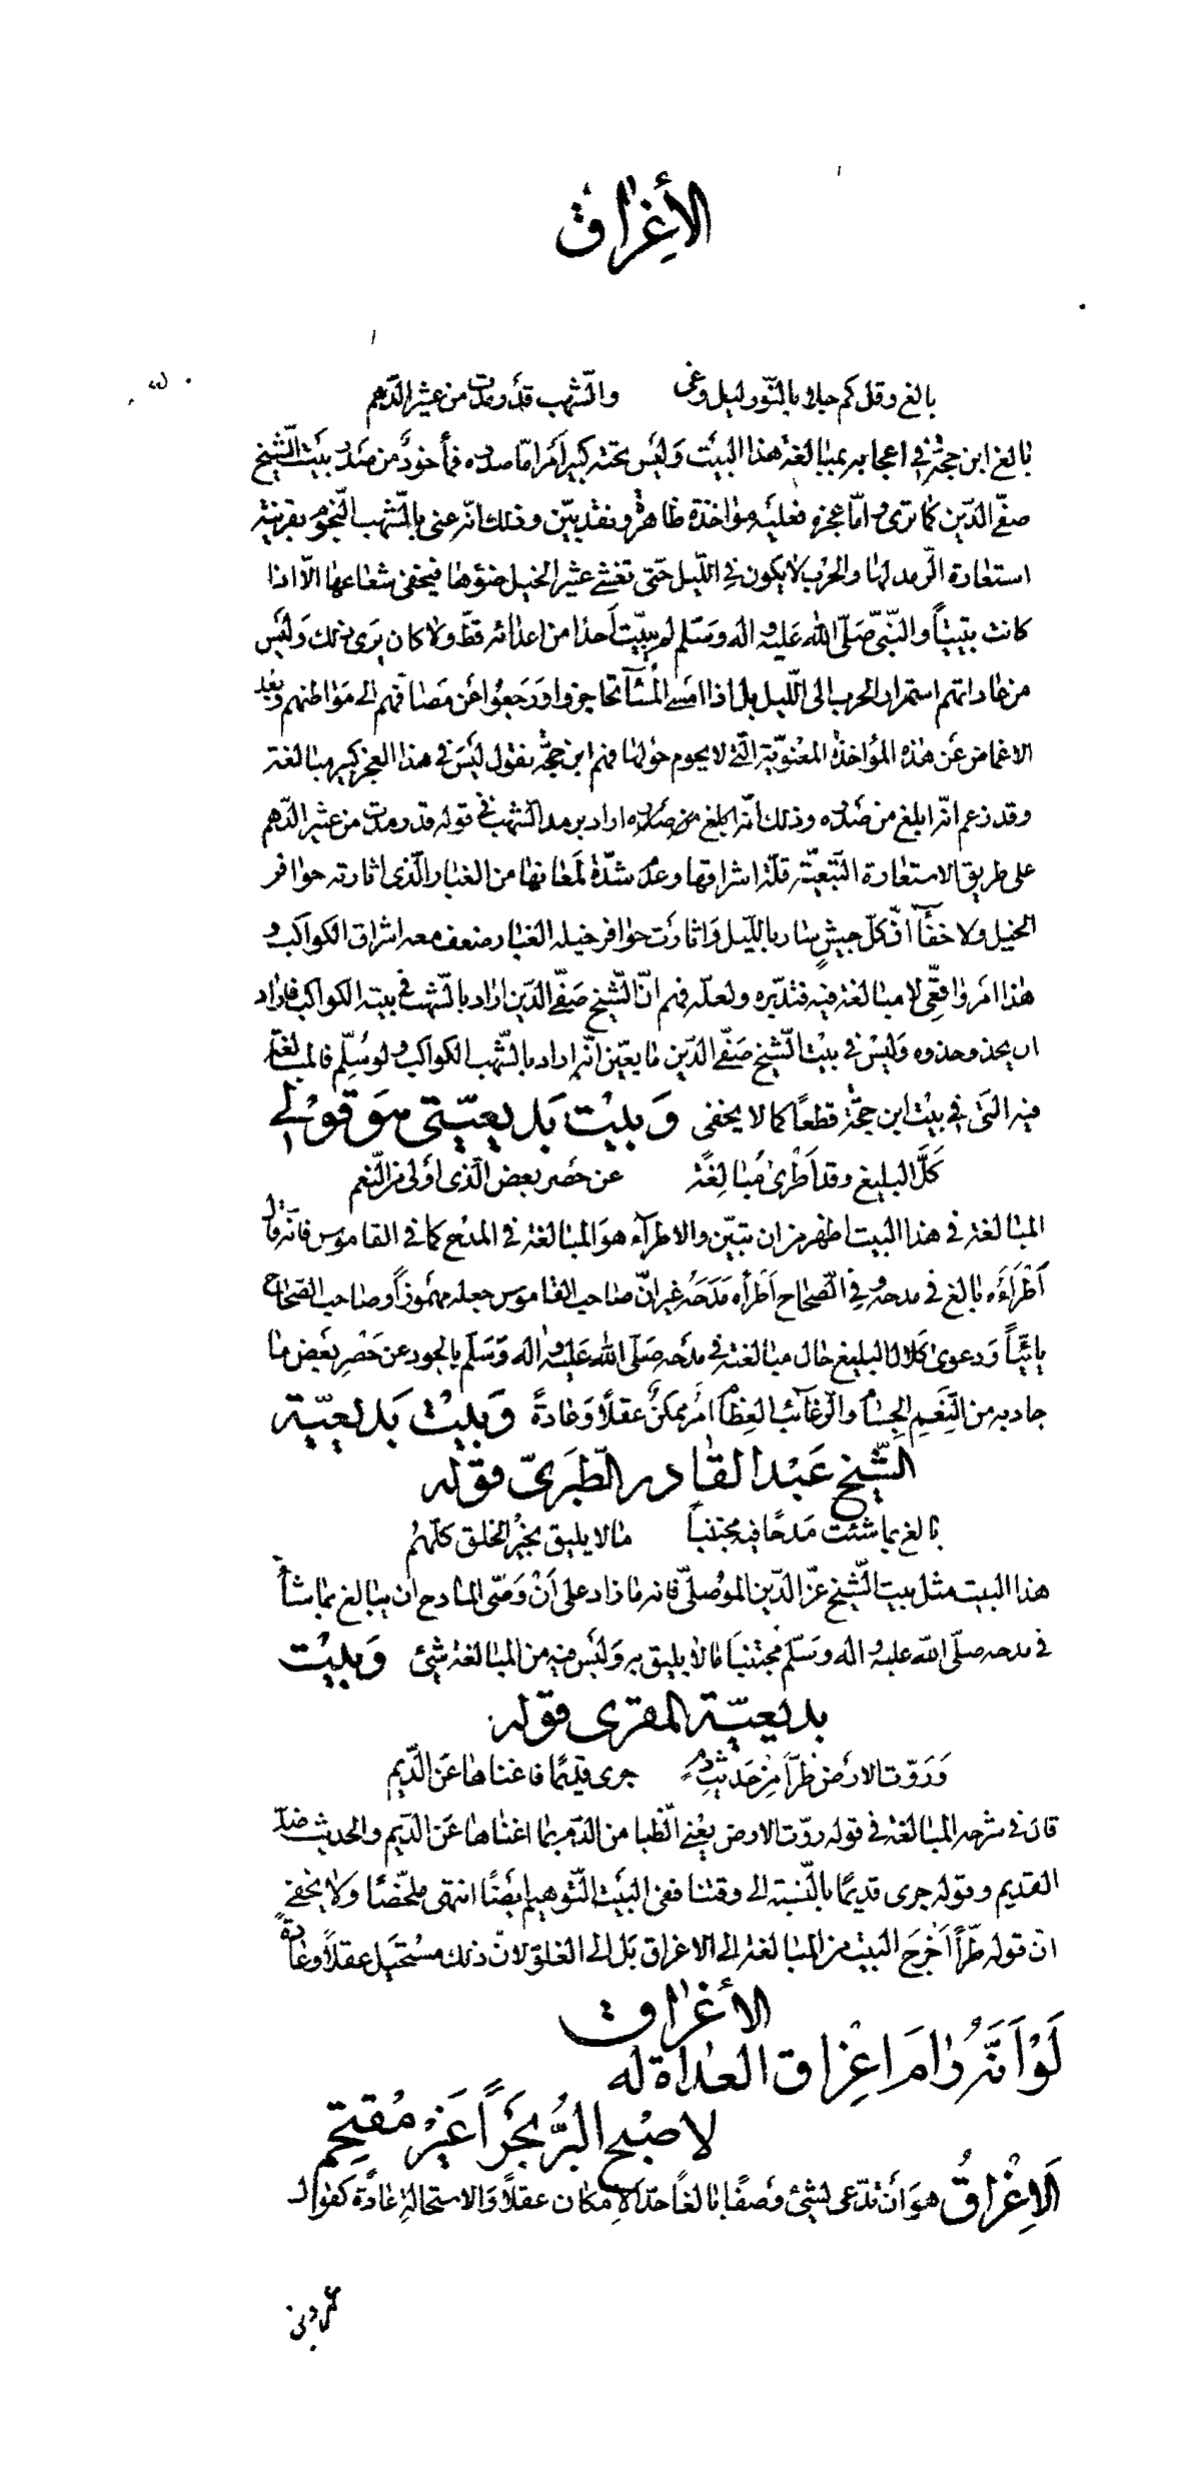 الأغراق
بالغ وقل كم جلا بالنّور ليل وغى والشّهب قد رمدت من عثير الدّهم
بالغ ابن حجّة في اعجابه بمبالغة هذا البيت وليس تحته كبير امر امّا صدره فمأخوذ من صدر بيت الشّيخ
صفّى الدّين كما ترى وامّا عجزه فعليه مؤاخذة ظاهرة ونقد بيّن وذلك انّه عنى بالشّهب النّجوم بقرينة
استعارة الرّمد لها والحرب لا يكون في اللّيل حتّى تغشى عثير الخيل ضؤها فيخفى شعاعها الّا اذا
كانت بتبييتاً والنّبىّ صلّى الله عليه واله وسلّم لم يبيّت احدا من اعدائه قطّ ولا كان يرى ذلك وليس
من عاداتهم استمرار الحرب الى اللّيل بل اذا امسى المسآ تحاجزوا ورجعوا عن مصافّهم الى مواطنهم وبعد
الاغماض عن هذه المؤاخذة المعنويّة الّتى لا يحوم حولها فهم ابن حجّة نقول ليس في هذا العجز كبير مبالغة
وقد زعم انّه ابلغ من صدره وذلك انّه اراد برمد الشّهب في قوله قد رمدت من عثير الدّهم
على طريق الاستعارة التّبعيّة قلّة اشراقها وعدم شدّة لمعانها من الغبار الّذى اثارته حوافر
الخيل ولا خفآء انّ كلّ جيشٍ سار باللّيل واثارت حوافر خيله الغبار ضعف معه اشراق الكواكب و
هذا امر واقعّى لا مبالغة فيه فتدبّره ولعلّه فهم انّ الشّيخ صفّى الدّين اراد بالشّهب في بيته الكواكب فاراد
ان يحذو حذوه وليس في بيت الشّيخ صفّى الدّين ما يعيّن انّه اراد بالشّهب الكواكب ولو سُلّم فالمبالغة
فيه الّتى في بيت ابن حجّة قطعًا كما لا يخفى وبيت بديعيّتى هو قولى
كلّ البليغ وقد اطرى مُبالغة عن حصر بعض الّذى اولى من النّعم
المبالغة في هذا البيت اظهر من ان تبيّن والاطرآء هو المبالغة في المدح كما في القاموس فانّه قال
اَطْرَأَه بالغ في مدحه وفي الصّحاح اَطْراه مَدَحَه غير انّ صاحب القاموس جعله مهموزاً وصاحب الصّحاح
يائيّاً ودعوى كلال البليغ حال مبالغته في مدحه صلّى الله عليه واله وسلّم بالجود عن حصر بعض ما
جاد به من النّعم الجسام والرّغائب العظام امر ممكنٌ عقلًا وعادةً وبيت بديعيّة
الشّيخ عبد القادر الطّبرىّ قوله
بالغ بما شئت مدحًا فيه مجتنباً ما لا يليق بخير الخلق كلّهم
هذا البيت مثل بيت الشّيخ عزّ الدّين الموصلّى فانّه ما زاد على أنْ وصّى المادح ان يبالغ بما شآء
في مدحه صلّى الله عليه واله وسلّم مجتنبا ما لا يليق به وليس فيه من المبالغة شئ وبيت
بديعيّة المقرى قوله
وروّت الارض طرّاً من حديث دمٍ جرى قديمًا فاغناها عن الدّيم
قال في شرحه المبالغة في قوله روّت الارض يعنى الظّبا من الدّم بما اغناها عن الدّيم والحديث ضدّ
القديم وقوله جرى قديمًا بالنّسبة الى وقتنا ففى البيت التّوهيم ايضًا انتهى ملخّصًا ولا يخفى
انّ قوله طرّاً اَخرج البيت من المبالغة الى الاغراق بل الى الغلوّ لانّ ذلك مستحيل عقلاً وعادةً
الأغراق
لَوْ اَنّه رام اِغراق العداة له
لاصبح البرُّ بحراً غير مُقتحم
اَلاِغْراقُ هو اَن تدّعى لشئ وصفًا بالغاً حدّ الاِمكان عقلاً والاستحالة عادةً كقوله